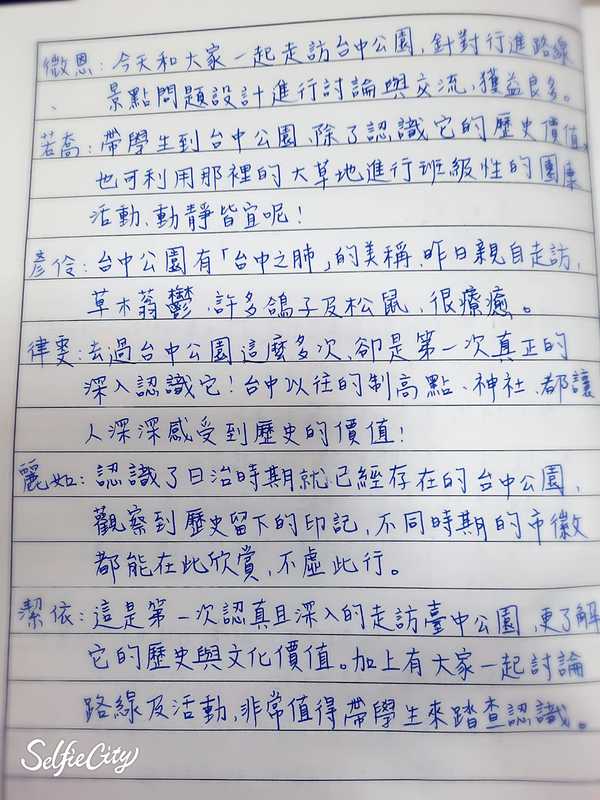 微恩：今天和大家一起走訪台中公園，針對行進路線
、景點問題設計進行討論與交流，獲益良多。
若喬：帶學生到台中公園、除了認識它的歷史價值、
也可利用那裡的大草地進行班級性的團康
活動、動靜皆宜呢！
彥伶：台中公園有「台中之肺」的美稱、昨日親自走訪、
草木蓊鬱、許多鴿子及松鼠、很療癒。
律雯：去過台中公園這麼多次、卻是第一次真正的
深入認識它！台中以往的制高點、神社、都讓
人深深感受到歷史的價值！
麗如：認識了日治時期就已經存在的台中公園，
觀察到歷史留下的印記，不同時期的市徽
都能在此欣賞，不虛此行。
潔依：這是第一次認真且深入的走訪臺中公園，更了解
它的歷史與文化價值。加上有大家一起討論
路線及活動，非常值得帶學生來踏查認識。
SelfieCity